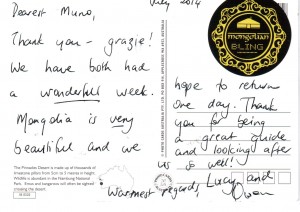 July 2014
Dearest Muno,
Thank you - grazie!
We have both had
a wonderful week.
Mongolia is very
beautiful and we
hope to return
one day. Thank
you for being
a great guide
and looking after
us so well!
Warmest regards, Lucy and
Owen
mongolian
BLING
The Pinnacles Desert is made up of thousands of
limestone pillars from 5cm to 5 metres in height.
Wildlife is abundant in the Nambung National
Park. Emus and kangaroos will often be sighted
crossing the desert.